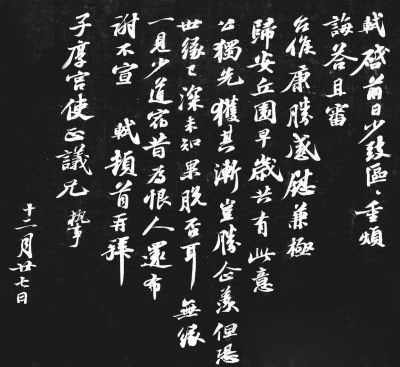 軾啓前日少致區區重煩
誨答且審
台候康勝感慰兼極
歸安丘園早歲共有此意
公獨先獲其漸豈勝企羨但恐
世緣已深未知果脫否耳無緣
一見少道宿昔為恨人還布
謝不宣 軾頓首再拜
子厚宮使正議兄執事
十二月廿七日